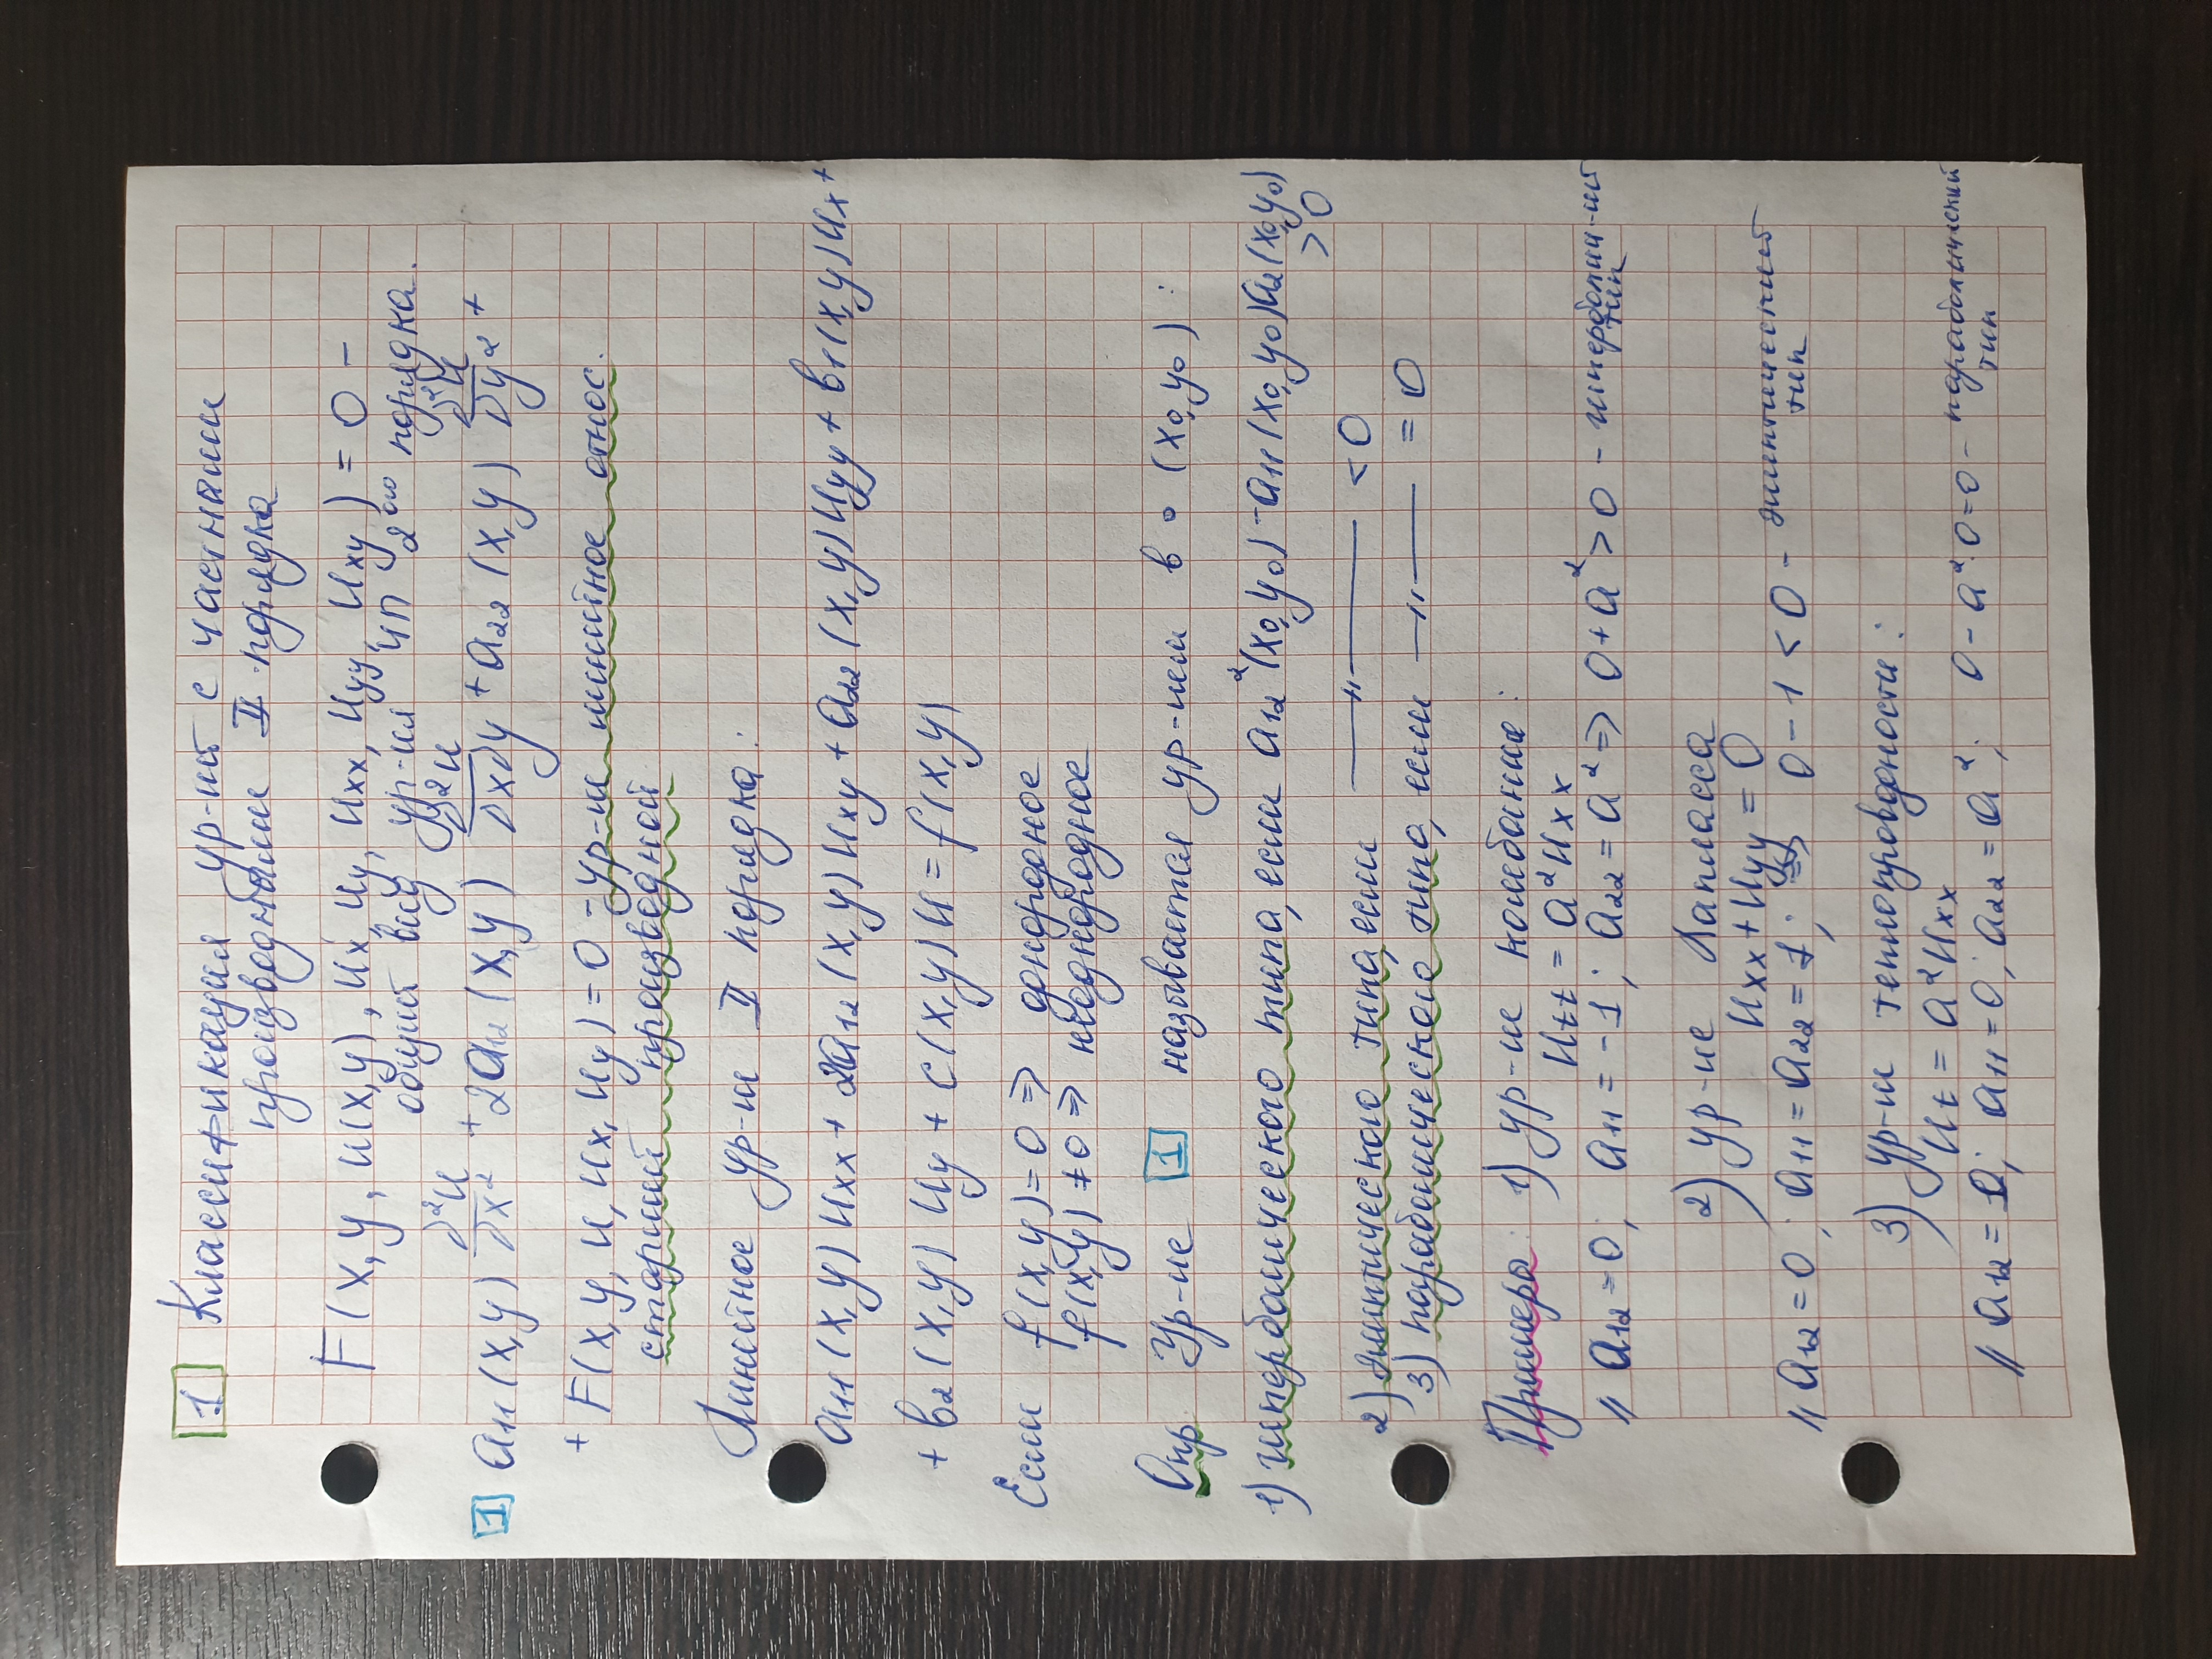 1 Классификация ур-ий с частными
производными II порядка
F(x, y, u(x,y), ux, uy, uxx, uyy, uxy) = 0 –
общий вид ур-ия ЧП 2ого порядка.
1 a11(x,y) ∂²u/∂x² + 2a12(x,y) ∂²u/∂x∂y + a22(x,y) ∂²u/∂y² +
+ F(x,y,u,ux,uy) = 0 – ур-и линейное относ.
старший производной
Линейное ур-и II порядка:
a11(x,y)uxx + 2a12(x,y)uxy + a22(x,y)uyy + b1(x,y)ux +
+ b2(x,y)uy + c(x,y)u = f(x,y)
Если f(x,y)=0 => однородное
f(x,y)≠0 => неоднородное
Опр Ур-ие 1 называется ур-ием в ∘ (x0,y0):
1) гиперболического типа, если a12²(x0,y0) - a11(x0,y0)a22(x0,y0)
>0
2) эллиптического типа, если —〃— <0
3) параболического типа, если —〃— = 0
Примеры: 1) ур-ие колебания:
utt = a²uxx
// a12=0; a11=-1; a22=a² => 0+a²>0 – гиперболич-ий
тип
2) ур-ие Лапласа
uxx+uyy=0
// a12=0; a11=a22=1; 0-1<0 – эллиптический
тип
3) ур-и теплопроводности:
ut = a²uxx
// a12=0; a11=0; a22=a²; 0-a²·0=0 – параболический
тип